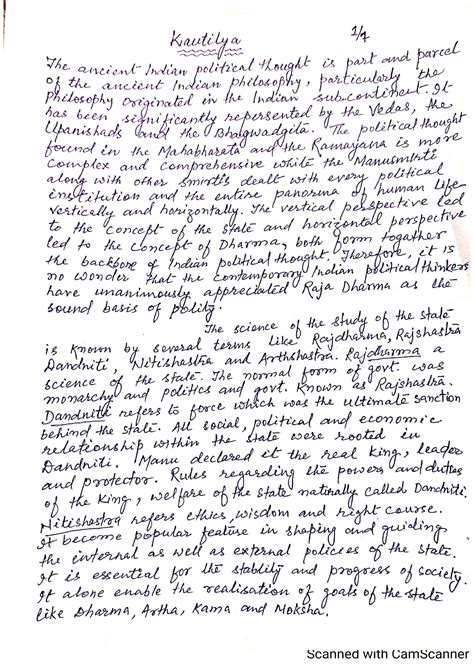 Kautilya 1/7
The ancient Indian political thought is part and parcel
of the ancient Indian philosophy, particularly the
Philosophy originated in the Indian sub-continent. It
has been significantly repersented by the Vedas, the
Upanishads and the Bhagwadgita. The political thought
found in the Mahabharata and the Ramayana is more
complex and comprehensive while the Manusmriti
along with other smritis dealt with every political
institution and the entire panorma of human life
vertically and horizontally. The vertical perspective led
to the concept of the state and horizontal perspective
led to the concept of Dharma, both form togather
the backbone of Indian political thought. Therefore, it is
no wonder that the contemporary Indian political thinkers
have unanimously appreciated Raja Dharma as the
sound basis of polity.
The science of the study of the state
is known by several terms like Rajdharma, Rajshastra
Dandniti, Nitishastra and Arthshastra. Rajdharma a
science of the state. The normal form of govt. was
monarchy and politics and govt. Known as Rajshastra.
Dandniti refers to force which was the ultimate sanction
behind the state. All social, political and economic
relationship within the state were rooted in
Dandniti. Manu declared it the real king, leader
and protector. Rules regarding the powers and duties
of the King, welfare of the state naturally called Dandniti.
Nitishastra refers ethics, wisdom and right course.
It become popular feature in shaping and guiding
the internal as well as external policies of the state.
It is essential for the stablity and progress of society.
It alone enable the realisation of goals of the state
like Dharma, Artha, Kama and Moksha.
Scanned with CamScanner